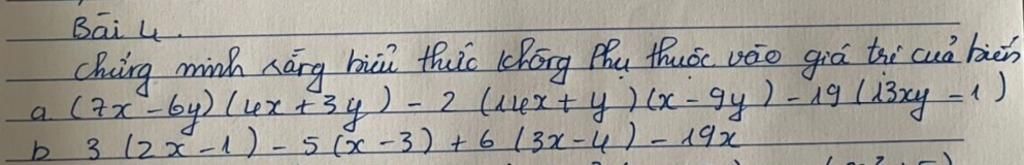 Bài 4.
Chứng minh rằng biểu thức không phụ thuộc vào giá trị của biến
a (7x - 6y)(4x + 3y) - 2 (14x + y)(x - 9y) - 19 (13xy - 1)
b 3 (2x - 1) - 5 (x - 3) + 6 (3x - 4) - 19x